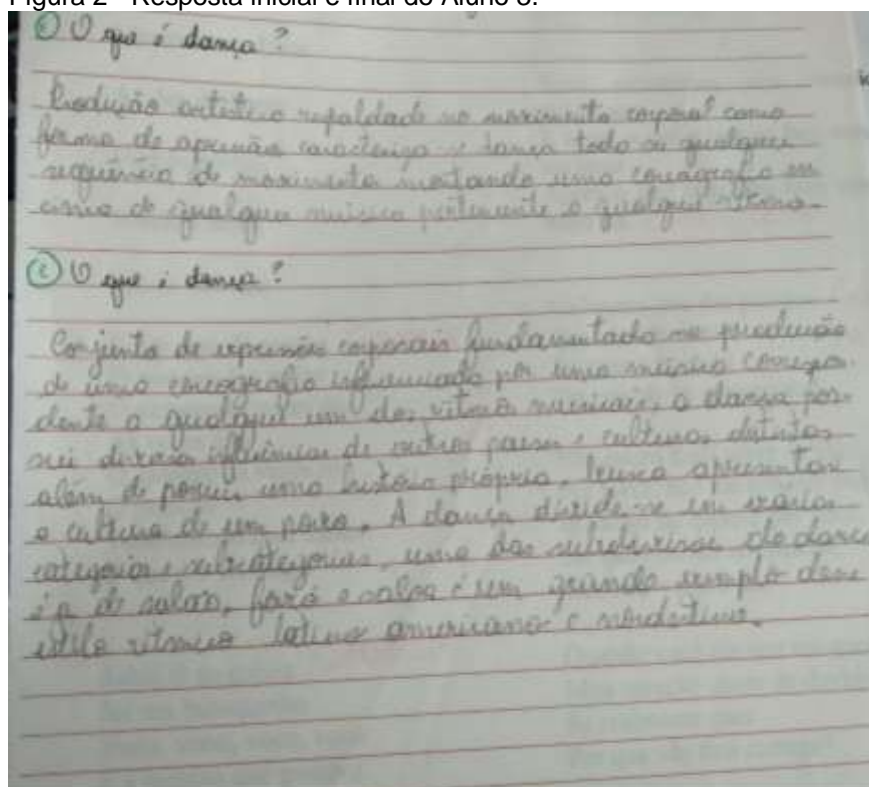 Figura 2 - Resposta inicial e final do Aluno 3.
O que é dança?
Produção artistica respaldado no movimento corporal como
forma de expressão caracteriza se dança todo ou qualquer
sequência de movimento montando uma coreografia em
cima de qualquer música pertencente a qualquer ritmo.
O que é dança?
Conjunto de expressões corporais fundamentado na produção
de uma coreografia influenciada por uma música correspon-
dente a qualquer um dos ritmos musicais, a dança pos-
sui diversas influências de outros países e culturas distintas
além de possuir uma história própria, busca apresentar
a cultura de um povo. A dança divide-se em várias
categorias e subcategorias, uma das subdivisões da dança
é a de salão, forró e salsa é um grande exemplo desse
estilo rítmico latino americano e nordestino.